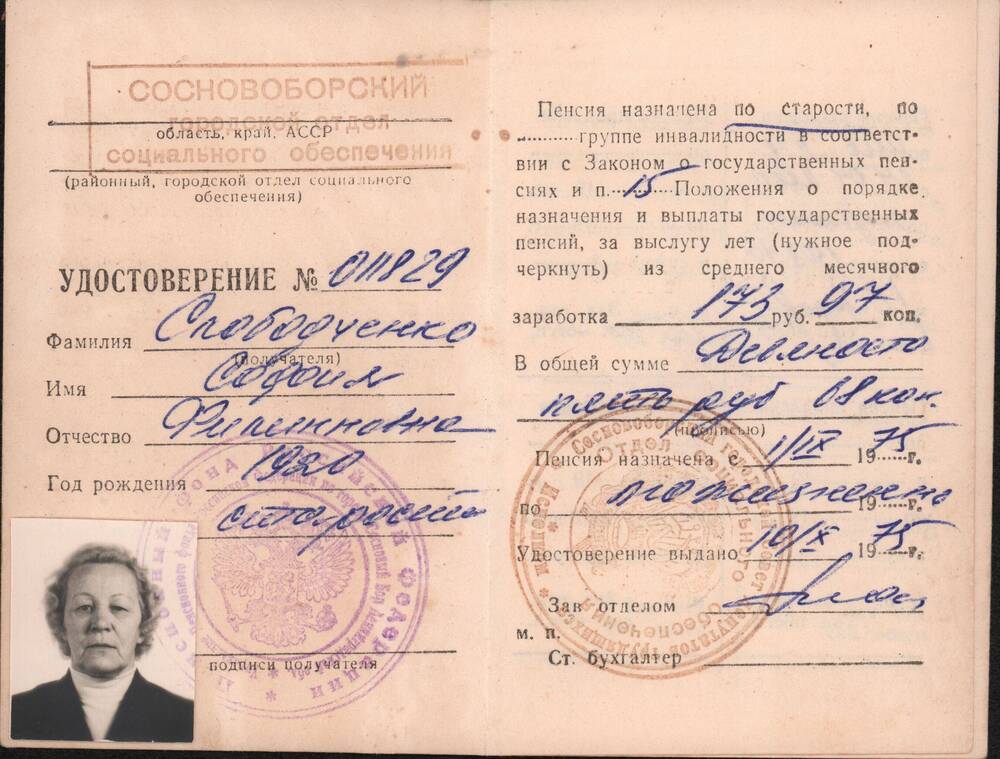 СОСНОВОБОРСКИЙ
городской отдел
социального обеспечения
область, край, АССР
(районный, городской отдел социального
обеспечения)
УДОСТОВЕРЕНИЕ № 011829
Фамилия Слободченко
(получателя)
Имя София
Отчество Филипповна
Год рождения 1920
подписи получателя
Пенсия назначена по старости, по
группе инвалидности в соответст-
вии с Законом о государственных пен-
сиях и п. 15 Положения о порядке
назначения и выплаты государственных
пенсий, за выслугу лет (нужное под-
черкнуть) из среднего месячного
заработка 173 руб. 97 коп.
В общей сумме Девяносто
пять руб 08 коп.
(прописью)
Пенсия назначена с 1/IX 1975 г.
по пожизненно 19 г.
Удостоверение выдано 10/IX 1975 г.
Зав отделом
м. п.
Ст. бухгалтер